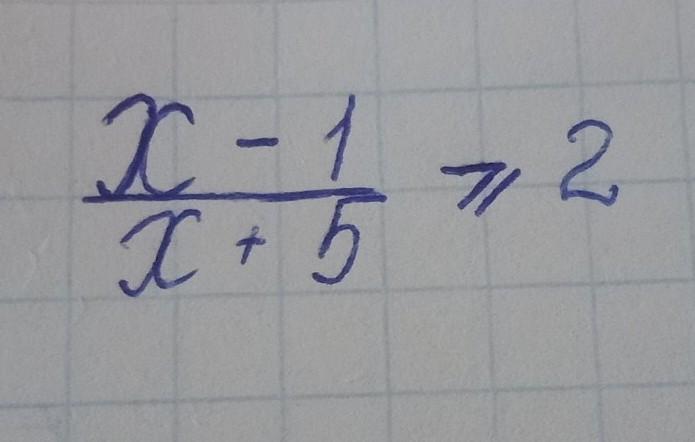 x - 1
x + 5 ⩾ 2